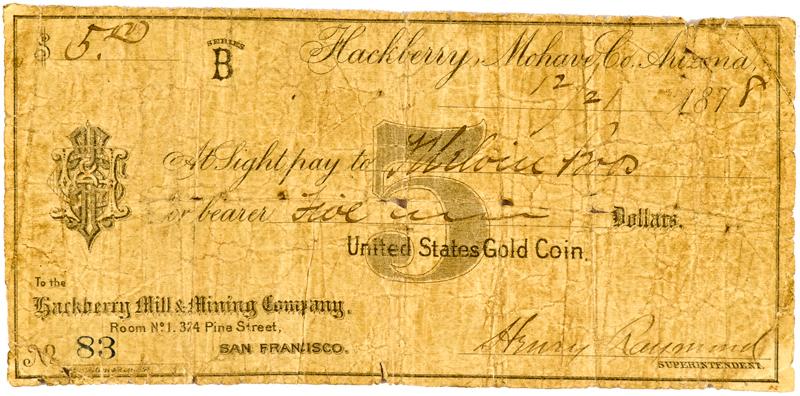 $ 5.00
SERIES
B
Hackberry, Mohave, Co. Arizona,
12/21 1878
5
At Sight pay to Bros
or bearer Five Dollars.
United States Gold Coin.
To the
Hackberry Mill & Mining Company.
Room No 1. 324 Pine Street,
SAN FRANCISCO.
No 83
Henry Raymond
SUPERINTENDENT.